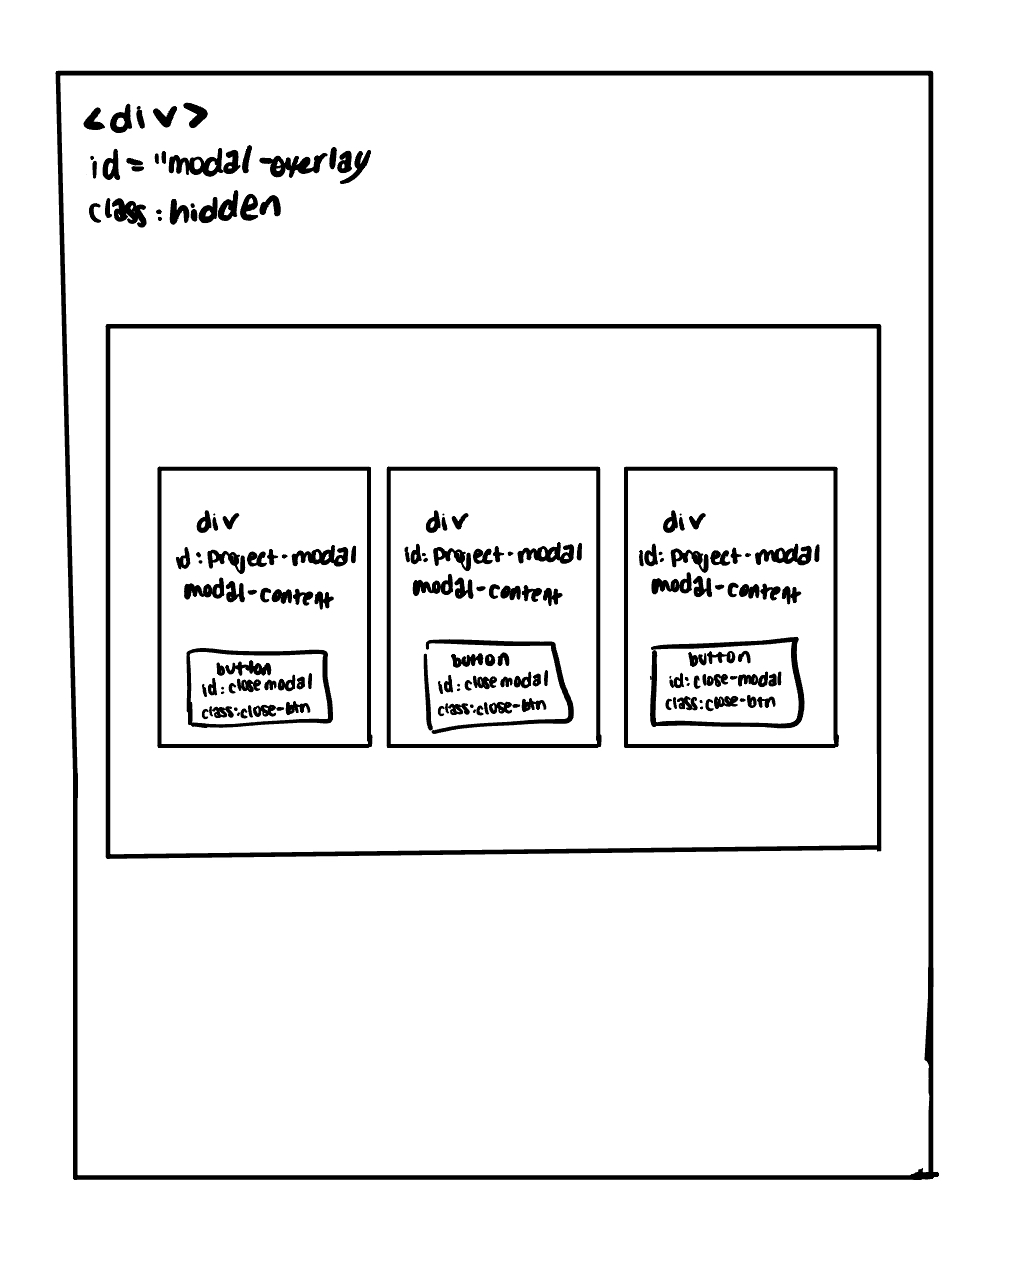 <div>
id = "modal-overlay
class: hidden
div
id: project-modal
modal-content
button
id: close modal
class: close-btn
div
id: project-modal
modal-content
button
id: close modal
class: close-btn
div
id: project-modal
modal-content
button
id: close-modal
class: close-btn